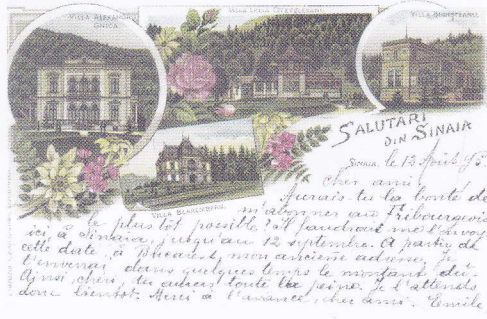 VILLA
GHICA
VILLA
VILLA
SALUTARI
DIN SINAIA
VILLA
SINAIA, le 12 Août
Cher ami
Aurais-tu la bonté de
m'abonner au Fribourgeois
le plus tôt possible? Il faudrait me l'envoyer
ici à Sinaia, jusqu'au 12 septembre. A partir de
cette date, à Bucarest, mon ancienne adresse. Je
t'enverrai dans quelques temps le montant dû.
Ainsi, cher, tu auras toute la peine. Je t'attends
donc bientôt. Merci à l'avance, cher ami. Emile